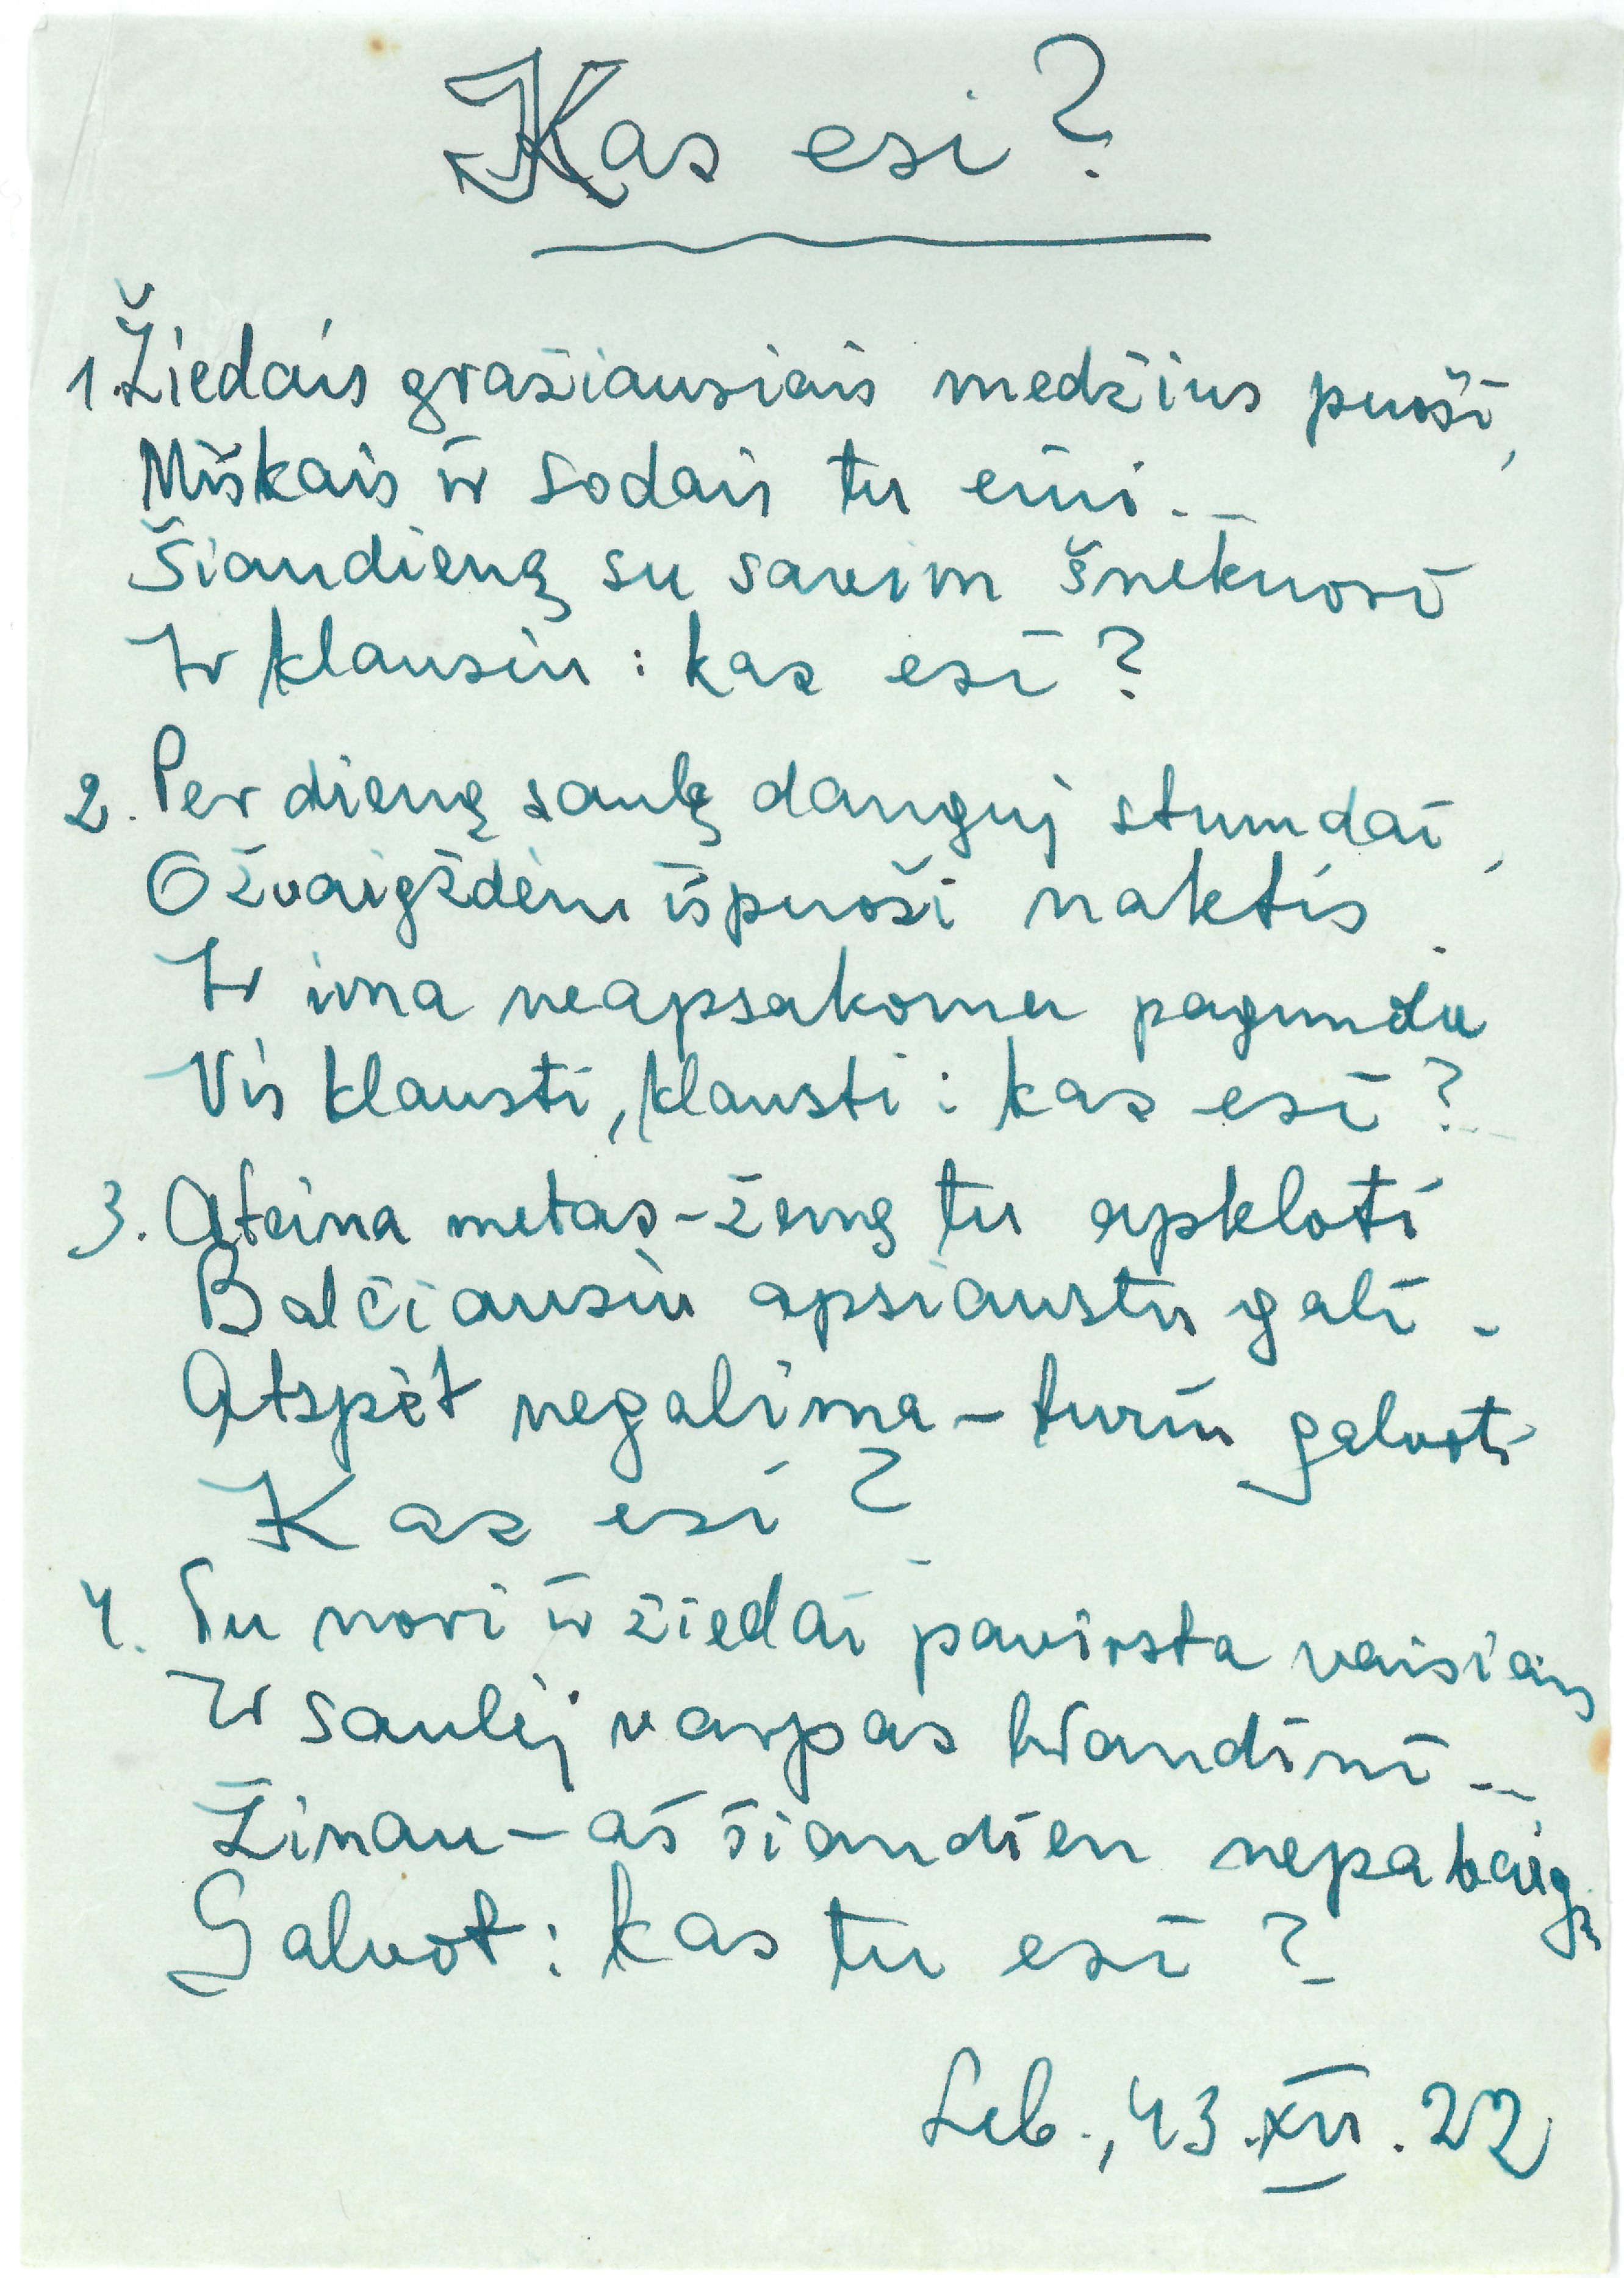 Kas esi?
1. Žiedais gražiausiais medžius puoši,
Miškais ir sodais tu eini. –
Šiandieną su savim šnekuosi
Ir klausiu: kas esi?
2. Per dieną saulę danguj stumdai,
O žvaigždėm išpuoši naktis.
Ir ima neapsakoma pagunda
Vis klausti, klausti: kas esi?
3. Ateina metas – žemę tu apkloti
Balčiausiu apsiaustu gali –
Atspėt negalima – turiu galvoti
Kas esi?
4. Tu nori ir žiedai pavirsta vaisiais
Ir saulėj varpas brandini –
Žinau – aš šiandien nepabaigs
Galvot: kas tu esi?
Leb., 43.XII.22